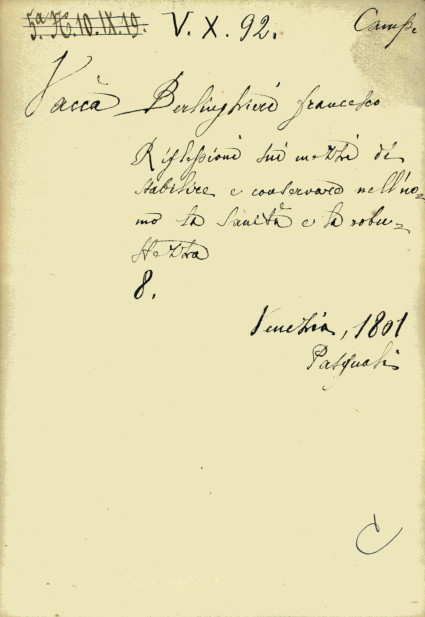 5ª H. 10. IX. 19. V. X. 92. Camp.
Vaccà Berlinghieri Francesco
Riflessioni sui mezzi di
stabilire e conservare nell'uo-
mo la sanità e la robu-
stezza
8.
Venezia, 1801
Pasquali
C